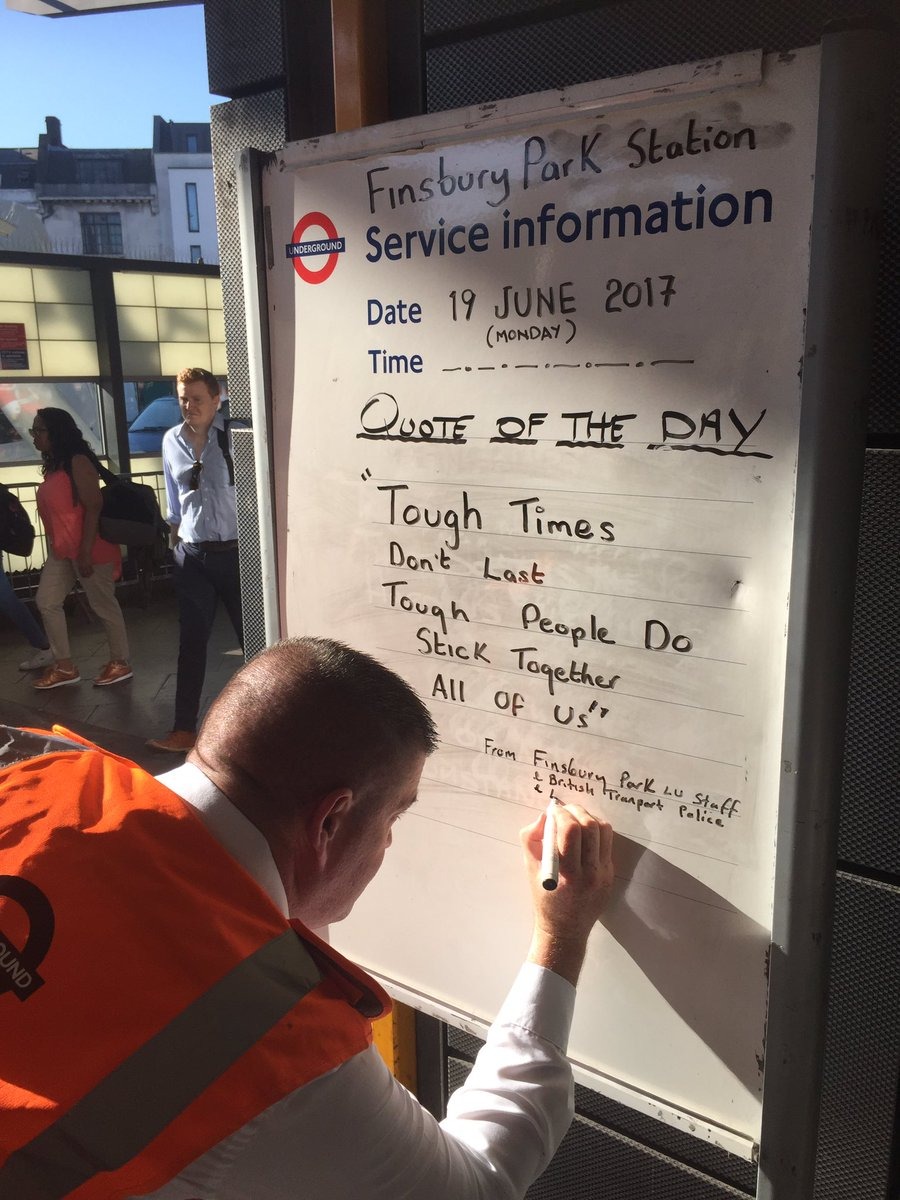 Finsbury Park Station
UNDERGROUND
Service information
Date 19 JUNE 2017
(MONDAY)
Time
QUOTE OF THE DAY
"Tough Times
Don't Last
Tough People Do
Stick Together
All OF Us"
From Finsbury Park LU Staff
& British Tranport Police
&
OUND